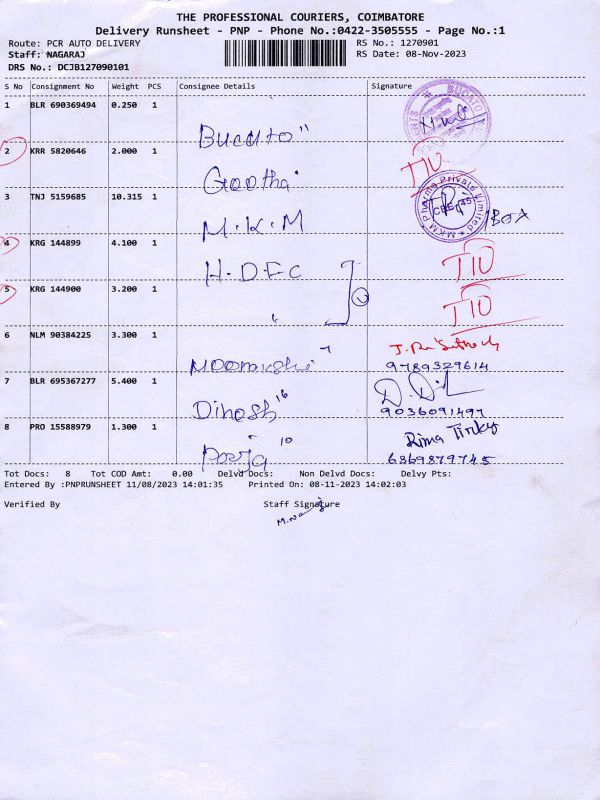 THE PROFESSIONAL COURIERS, COIMBATORE
Delivery Runsheet - PNP - Phone No.:0422-3505555 - Page No.:1
Route: PCR AUTO DELIVERY RS No.: 1270901
Staff: NAGARAJ RS Date: 08-Nov-2023
DRS No.: DCJB127090101
S No Consignment No Weight PCS Consignee Details Signature
1 BLR 690369494 0.250 1 Bucato"
2 KRR 5820646 2.000 1 Gootha TIU
3 TNJ 5159685 10.315 1 M.K.M MKM Pharma Private Limited CBE-45 1BOX
4 KRG 144899 4.100 1 H.DFC TIU
5 KRG 144900 3.200 1 " TIU
6 NLM 90384225 3.300 1 7
9789329614
7 BLR 695367277 5.400 1 Dinosh 16
9036091497
8 PRO 15588979 1.300 1 Pooja 10 Rima Tirky
6369879745
Tot Docs: 8 Tot COD Amt: 0.00 Delvd Docs: Non Delvd Docs: Delvy Pts:
Entered By :PNPRUNSHEET 11/08/2023 14:01:35 Printed On: 08-11-2023 14:02:03
Verified By Staff Signature